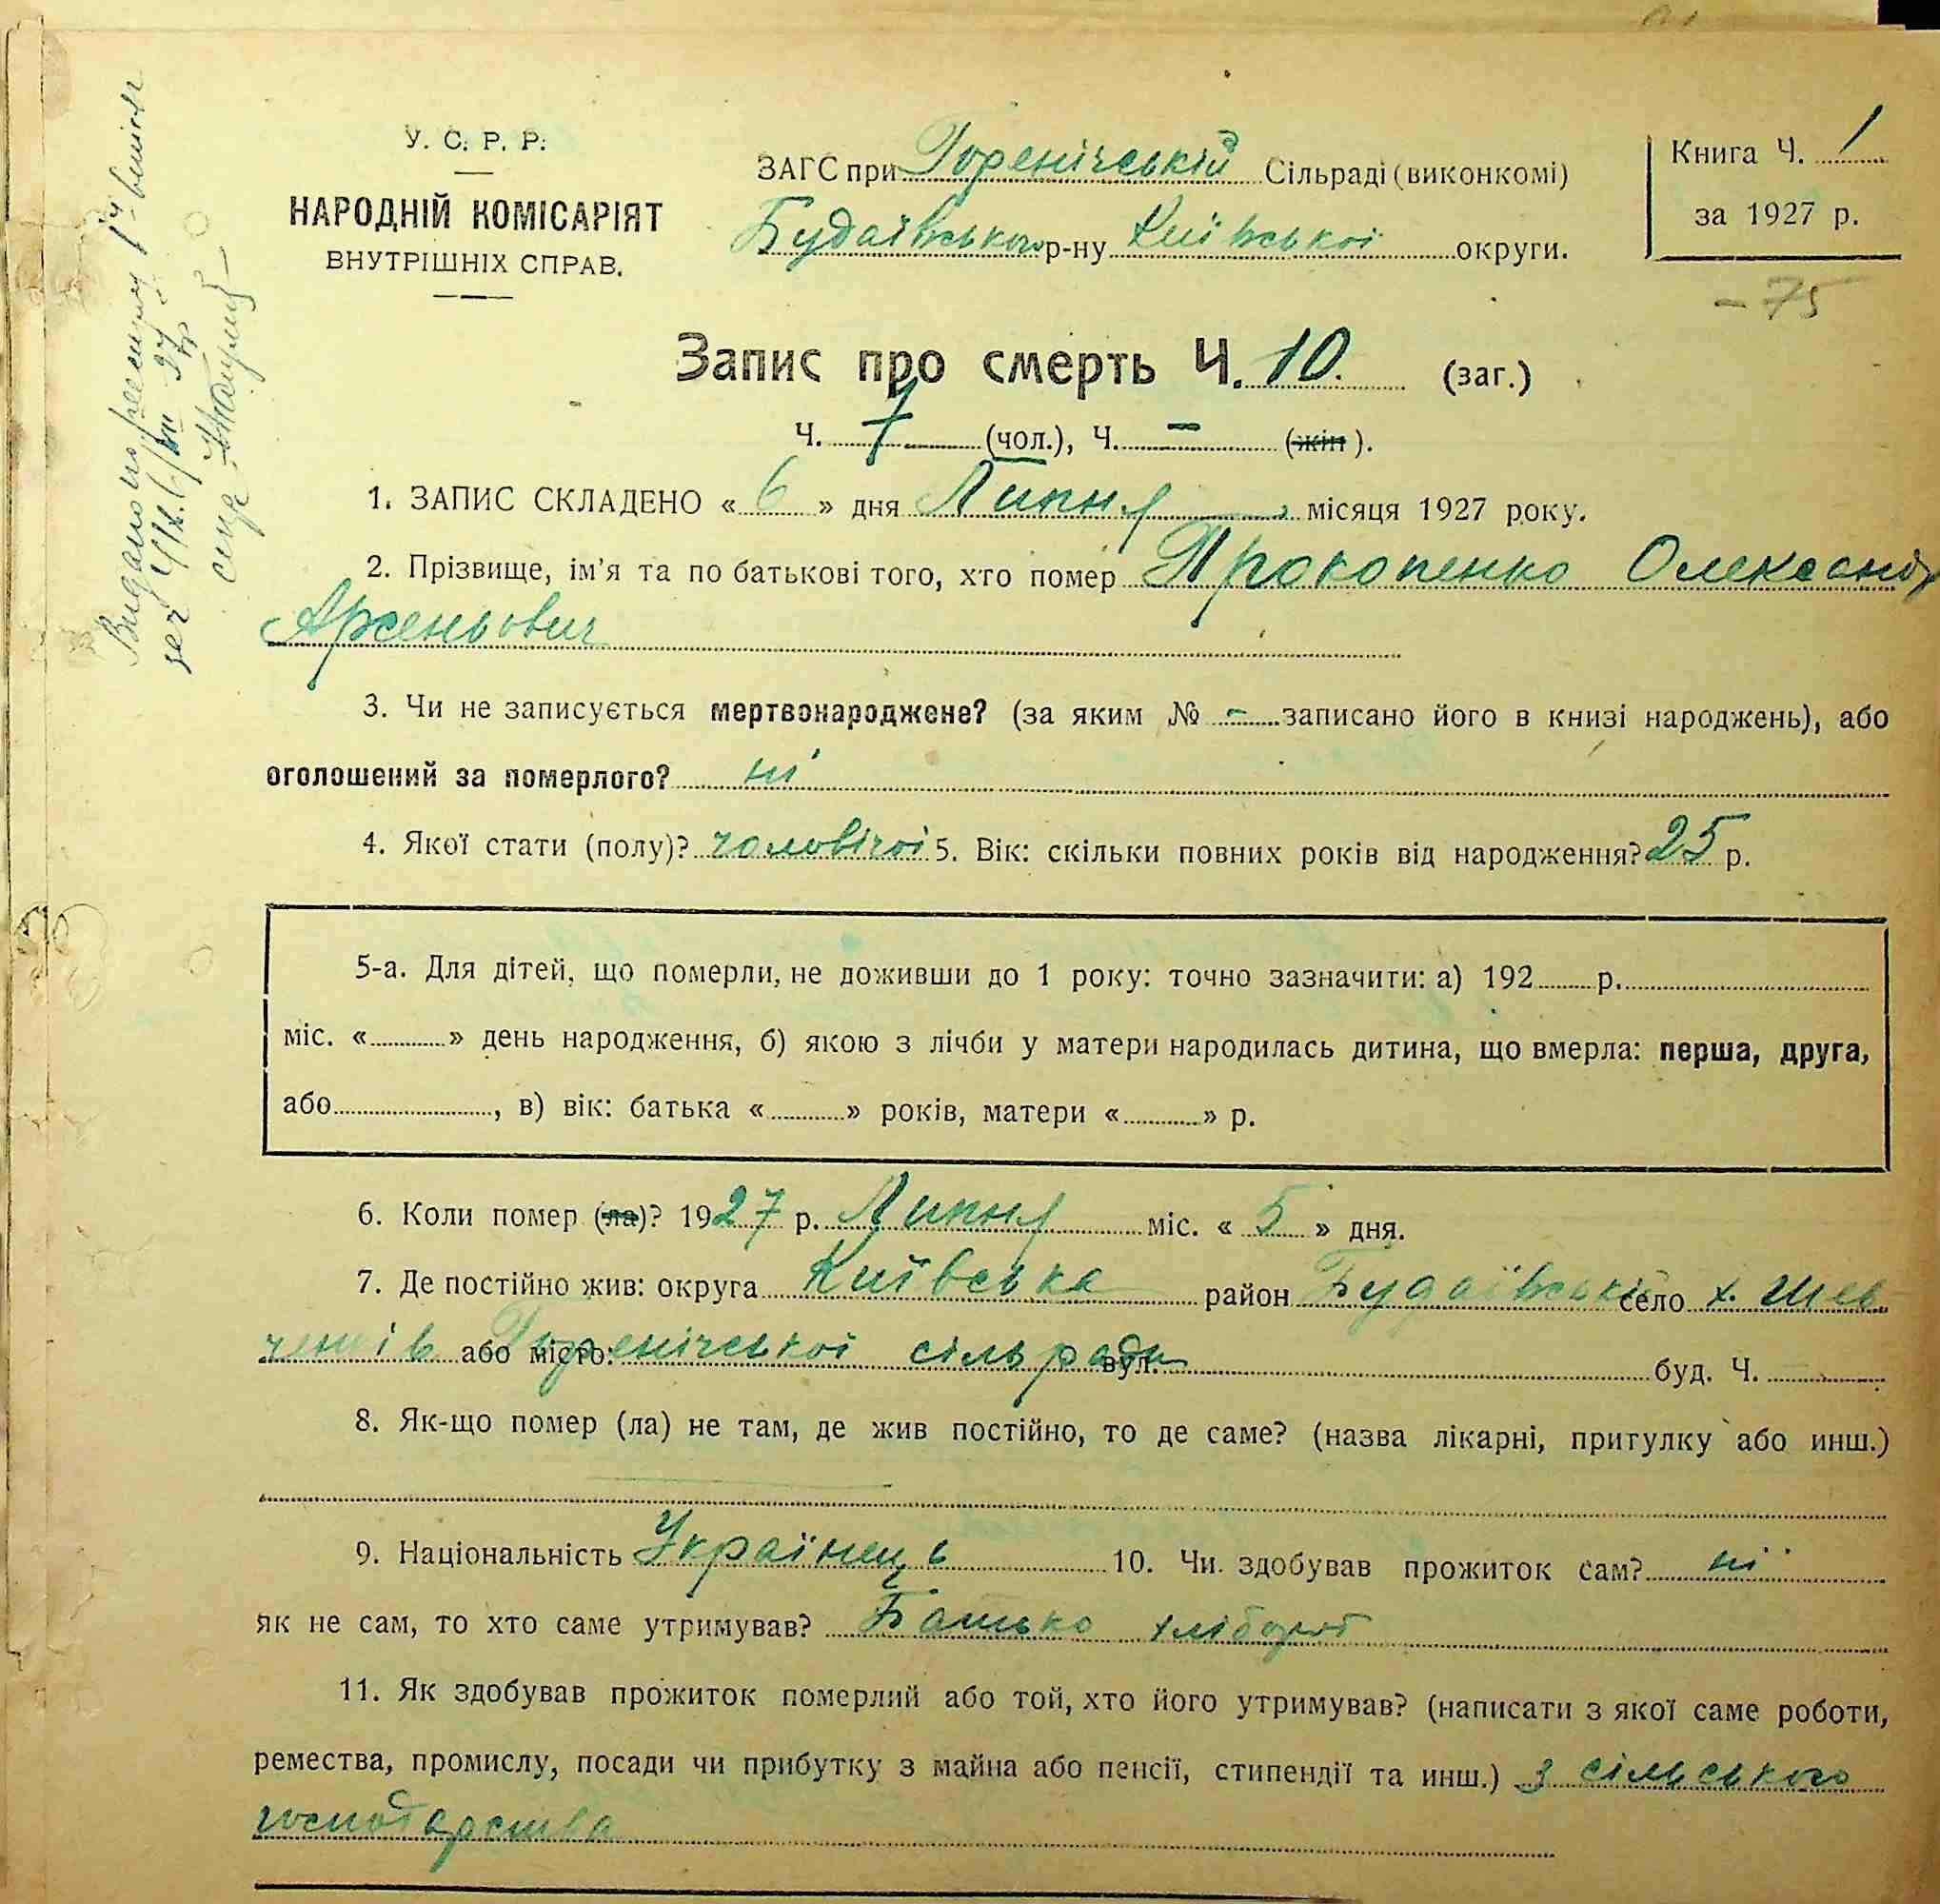 У. С. Р. Р.
НАРОДНІЙ КОМІСАРІЯТ
ВНУТРІШНІХ СПРАВ.
ЗАГС при Горенічській Сільраді (виконкомі)
Будаївського р-ну Київської округи.
Книга Ч. 1
за 1927 р.
– 75
Запис про смерть Ч. 10. (заг.)
Ч. 7 (чол.), Ч. – (жін).
1. ЗАПИС СКЛАДЕНО « 6 » дня Липня місяця 1927 року.
2. Прізвище, ім'я та по батькові того, хто помер Прокопенко Олександр
Арсеньович
3. Чи не записується мертвонароджене? (за яким № – записано його в книзі народжень), або
оголошений за померлого? ні
4. Якої стати (полу)? чоловічої 5. Вік: скільки повних років від народження? 25 р.
5-а. Для дітей, що померли, не доживши до 1 року: точно зазначити: а) 192 р.
міс. « » день народження, б) якою з лічби у матери народилась дитина, що вмерла: перша, друга,
або , в) вік: батька « » років, матери « » р.
6. Коли помер (ла)? 1927 р. Липня міс. « 5 » дня.
7. Де постійно жив: округа Київська район Будаївський село х. Шев
ченків або місто: Горенічської сільради вул. буд. Ч.
8. Як-що помер (ла) не там, де жив постійно, то де саме? (назва лікарні, притулку або инш.)
9. Національність Українець 10. Чи здобував прожиток сам? ні
як не сам, то хто саме утримував? Батько хлібороб
11. Як здобував прожиток померлий або той, хто його утримував? (написати з якої саме роботи,
ремества, промислу, посади чи прибутку з майна або пенсії, стипендії та инш.) з сільського
господарства